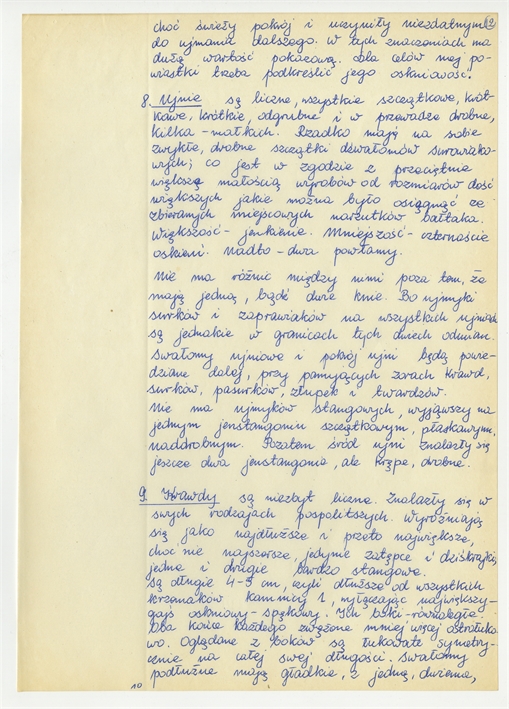 choć świeży pokrój i uczyniły niezdatnym 12
do ujmania dalszego. W tych znaczeniach ma
dużą wartość pokazową. Dla celów mej po-
wiastki trzeba podkreślić jego oskniowość.
8. Ujnie są liczne, wszystkie szczątkowe, krót-
kawe, krótkie, odgrubne i w przewadze drobne,
kilka - małkach. Rzadko mają na sobie
zwykłe, drobne szczątki dświatomów surowiako-
wych; co jest w zgodzie z przeciętnie
większą małością wyrobów od rozmiarów dość
większych jakie można było osiągnąć ze
zbieranych miejscowych narzutków bałtaka.
Większość - jenkienie. Mniejszość - czternaście
oskieni. Nadto - dwa powłamy.
Nie ma różnic między nimi poza tem, że
mają jedną, bądź dwie knie. Bo ujmyki
surków i zaprawiaków na wszystkich ujniach
są jednakie w granicach tych dwech odmian.
Swałomy ujniowe i pokrój ujni będą powie-
dziane dalej, przy panujących zorach krawd,
surków, pasurków, złupek i twardzów.
Nie ma ujmyków stangowych, wyjąwszy na
jednym jenstangoniu szczątkowym, płaskawym,
naddrobnym. Pozatem śród ujni znalazły się
jeszcze dwa jenstangonia, ale krępe, drobne.
9. Krawdy są niezbyt liczne. Znalazły się w
swych rodzajach pospolitszych. Wyróżniają
się jako najdłuższe i przeto największe,
choć nie najszersze, jedynie zatępce i
jedne i drugie bardzo stangowe.
Są długie 4-5 cm, czyli dłuższe od wszystkich
krzemaków kamnicy 1, wyłączając największy-
gajś oskniowy - spąkowy. Ich boki - równoległe.
Oba końce każdego zwężone mniej więcej ostrołuko-
wo. Oglądane z boków są łukowate symetry-
cznie na całej swej długości. Swałomy
podłużne mają gładkie, z jedną, dwiema,
10